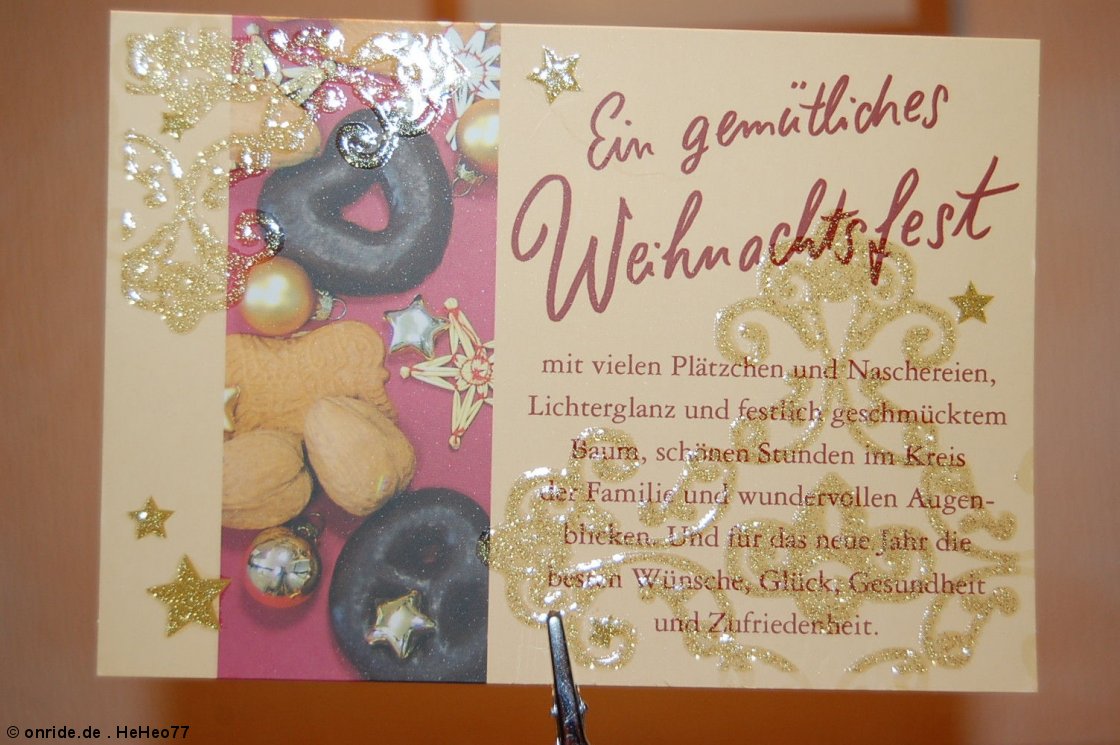 Ein gemütliches
Weihnachtsfest
mit vielen Plätzchen und Naschereien,
Lichterglanz und festlich geschmücktem
Baum, schönen Stunden im Kreis
der Familie und wundervollen Augen-
blicken. Und für das neue Jahr die
besten Wünsche, Glück, Gesundheit
und Zufriedenheit.
© onride.de . HeHeo77